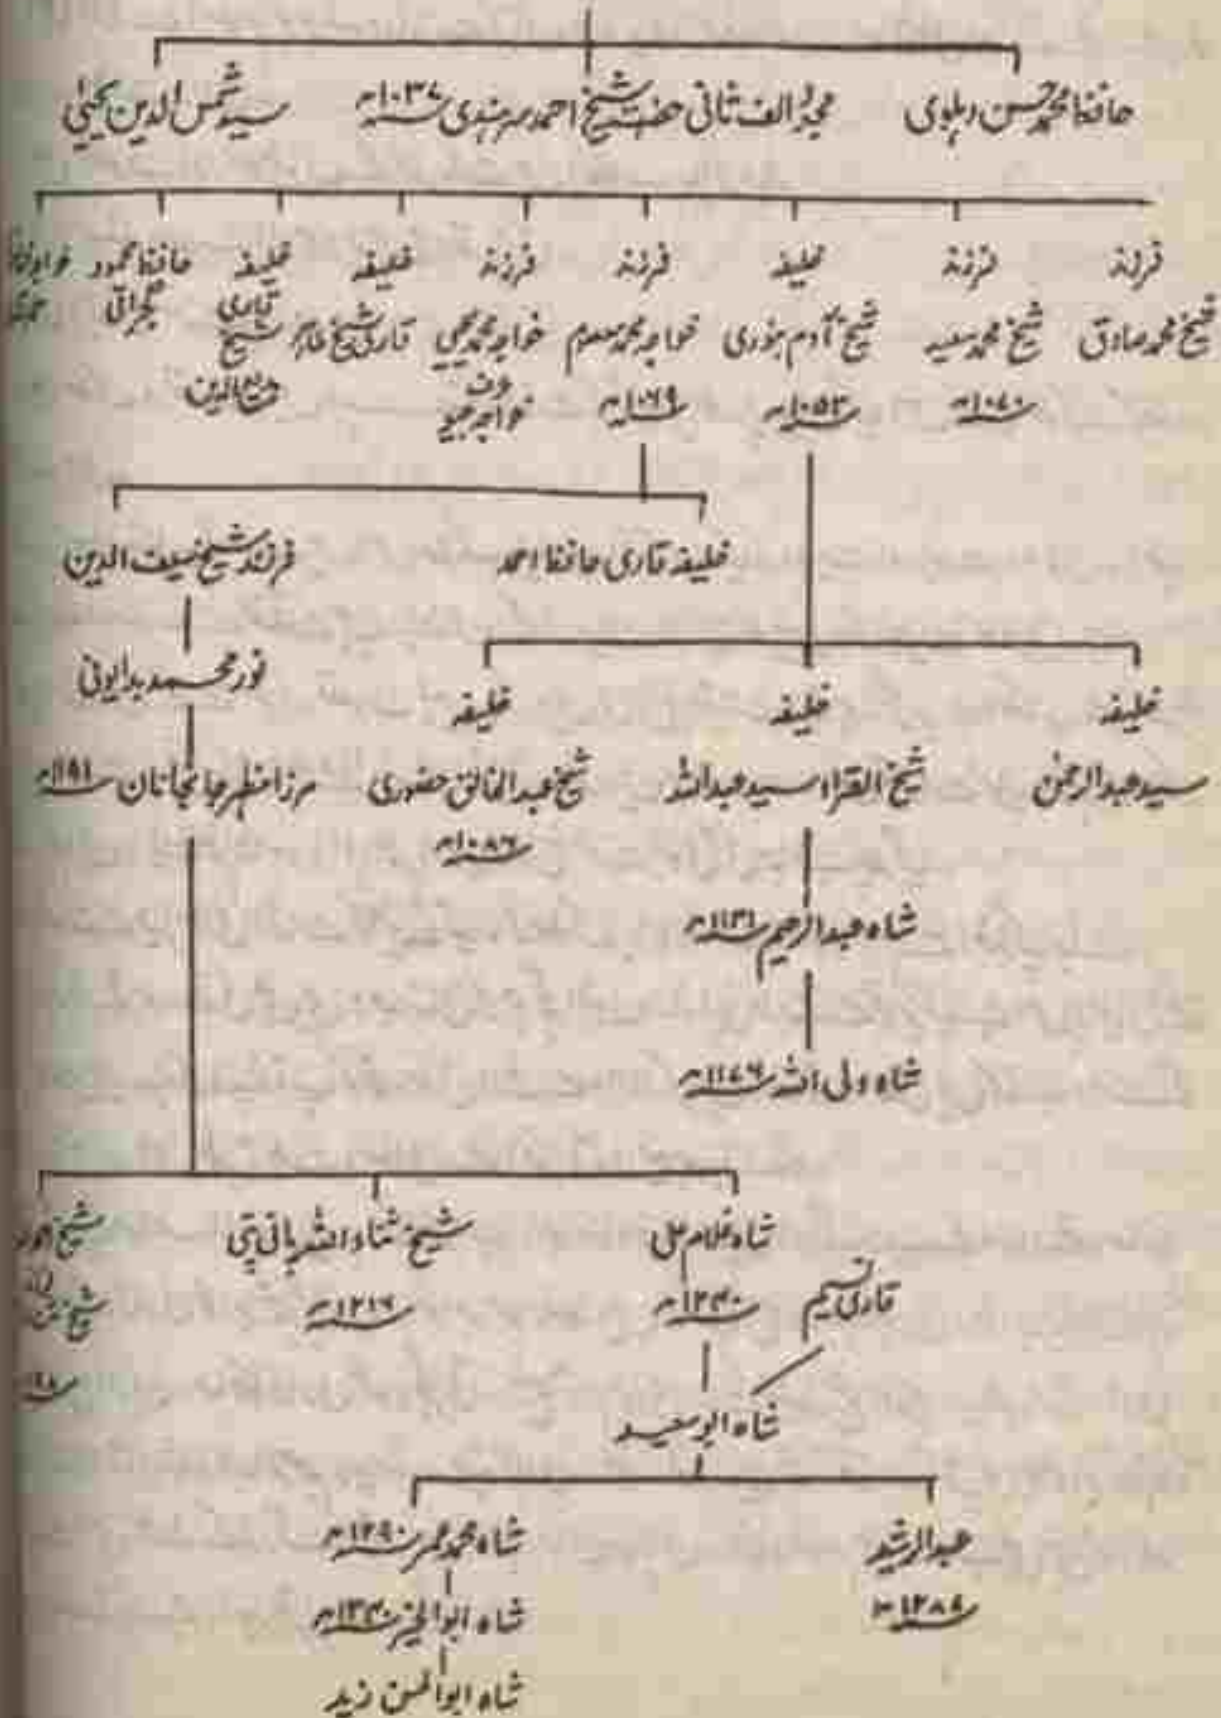 حافظ محمد حسن دہلوی
مجدد الف ثانی حضرت شیخ احمد سرہندی ۱۰۳۴ھ
سید شمس الدین یحییٰ
فرزند
شیخ محمد صادق
فرزند
شیخ محمد سعید
۱۰۷۰ھ
خلیفہ
شیخ آدم بنوری
۱۰۵۳ھ
فرزند
خواجہ محمد معصوم
۱۰۶۹ھ
فرزند
خواجہ محمد یحییٰ
عرف
خواجہ جیو
خلیفہ
قاری شیخ طاہر
خلیفہ
قاری
شیخ
الدین
حافظ محمود
گجراتی
خلیفہ قاری حافظ احمد
فرزند شیخ سیف الدین
نور محمد بدایونی
مرزا مظہر جانجاناں ۱۱۹۱ھ
خلیفہ
سید عبدالرحمٰن
خلیفہ
شیخ القراء سید عبداللہ
خلیفہ
شیخ عبدالخالق حضوری
۱۰۸۶ھ
شاہ عبدالرحیم ۱۱۳۱ھ
شاہ ولی اللہ ۱۱۷۶ھ
شاہ غلام علی
۱۲۴۰ھ
قاری نسیم
شیخ ثناء اللہ پانی پتی
۱۲۱۶ھ
شیخ
شیخ
شاہ ابو سعید
عبدالرشید
۱۲۸۷ھ
شاہ محمد عمر ۱۲۹۰ھ
شاہ ابوالخیر ۱۳۴۰ھ
شاہ ابوالحسن زید